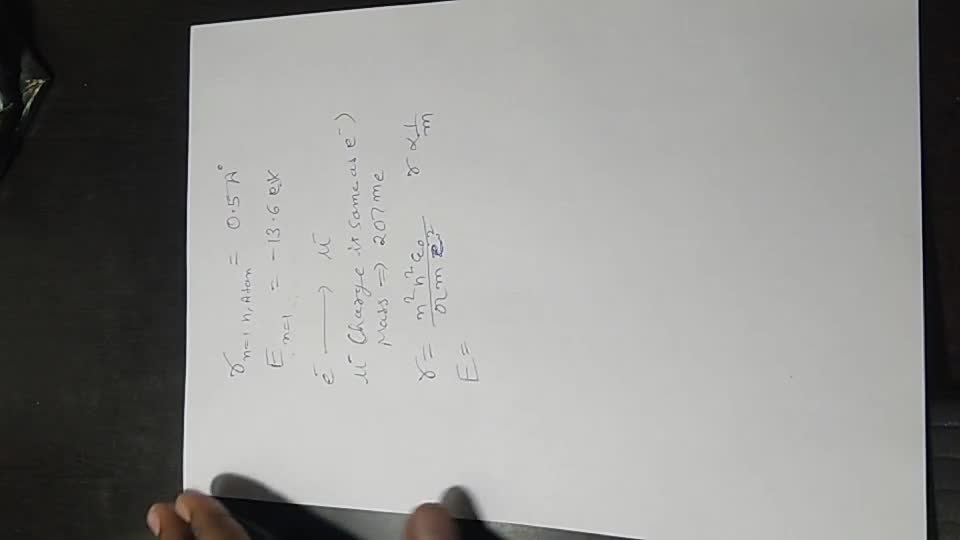 r n=1 H, Atom = 0.5 A°
E n=1 = -13.6 eV
e⁻ ⟶ μ⁻
μ⁻ (Charge is same as e⁻)
Mass ⇒ 207 me
r = n²h²ε₀ / πme² r ∝ 1/m
E =